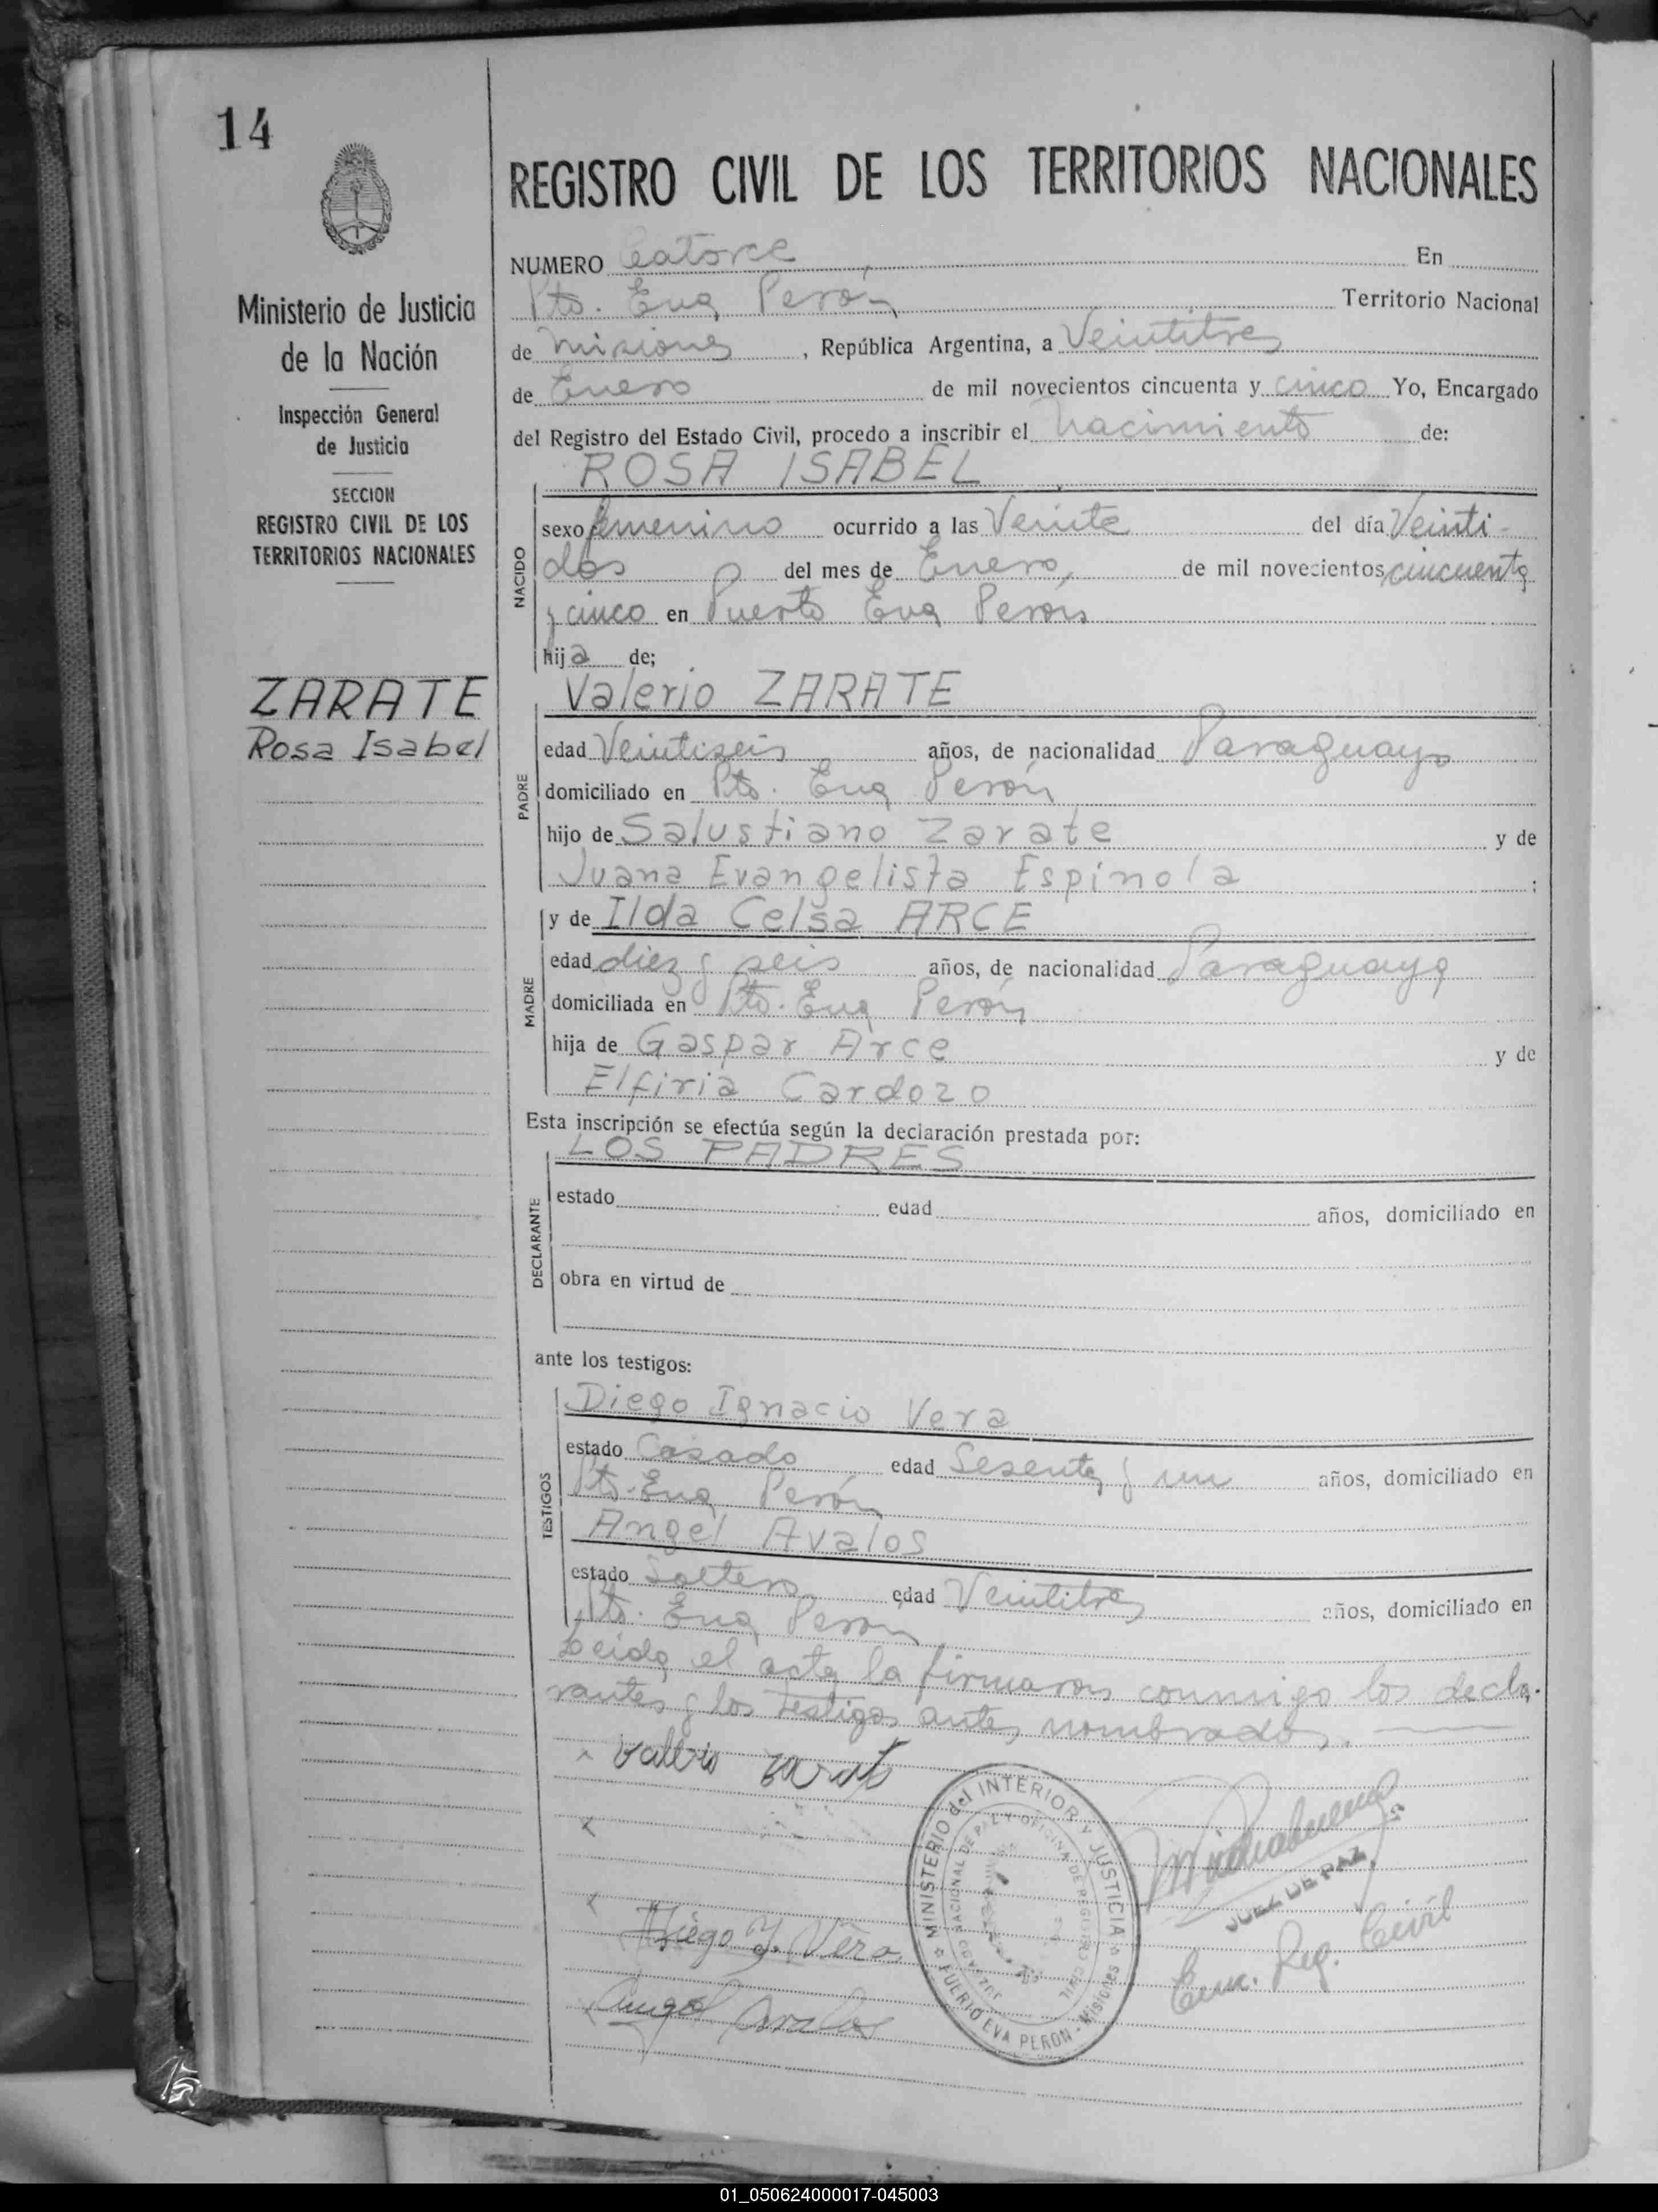 14
REGISTRO CIVIL DE LOS TERRITORIOS NACIONALES
Ministerio de Justicia
de la Nación
Inspección General
de Justicia
SECCION
REGISTRO CIVIL DE LOS
TERRITORIOS NACIONALES
ZARATE
Rosa Isabel
NUMERO Catorce En
Pto. Eva Perón Territorio Nacional
de Misiones, República Argentina, a Veintitres
de Enero de mil novecientos cincuenta y cinco Yo, Encargado
del Registro del Estado Civil, procedo a inscribir el Nacimiento de:
ROSA ISABEL
NACIDO
sexo femenino ocurrido a las Veinte del día Veinti-
dos del mes de Enero, de mil novecientos cincuenta
y cinco en Puerto Eva Perón
hija de;
Valerio ZARATE
PADRE
edad Veintiseis años, de nacionalidad Paraguayo
domiciliado en Pto. Eva Perón
hijo de Salustiano Zarate y de
Juana Evangelista Espinola ;
y de Ilda Celsa ARCE
MADRE
edad diez y seis años, de nacionalidad Paraguaya
domiciliada en Pto. Eva Perón
hija de Gaspar Arce y de
Elfiria Cardozo
Esta inscripción se efectúa según la declaración prestada por:
LOS PADRES
DECLARANTE
estado edad años, domiciliado en
obra en virtud de
ante los testigos:
TESTIGOS
Diego Ignacio Vera
estado Casado edad Sesenta y un años, domiciliado en
Pto. Eva Perón
Angel Avalos
estado Soltero edad Veintitres años, domiciliado en
Pto. Eva Perón
Leida el acta la firmaron conmigo los decla-
rantes y los testigos antes nombrados.
Valerio Zarate
MINISTERIO del INTERIOR Y JUSTICIA
JUZGADO NACIONAL DE PAZ Y OFICINA DE REGISTRO CIVIL
PUERTO EVA PERON - Misiones
JUEZ DE PAZ
Enc. Reg. Civil
Diego I. Vera
Angel Avalos
01_050624000017-045003